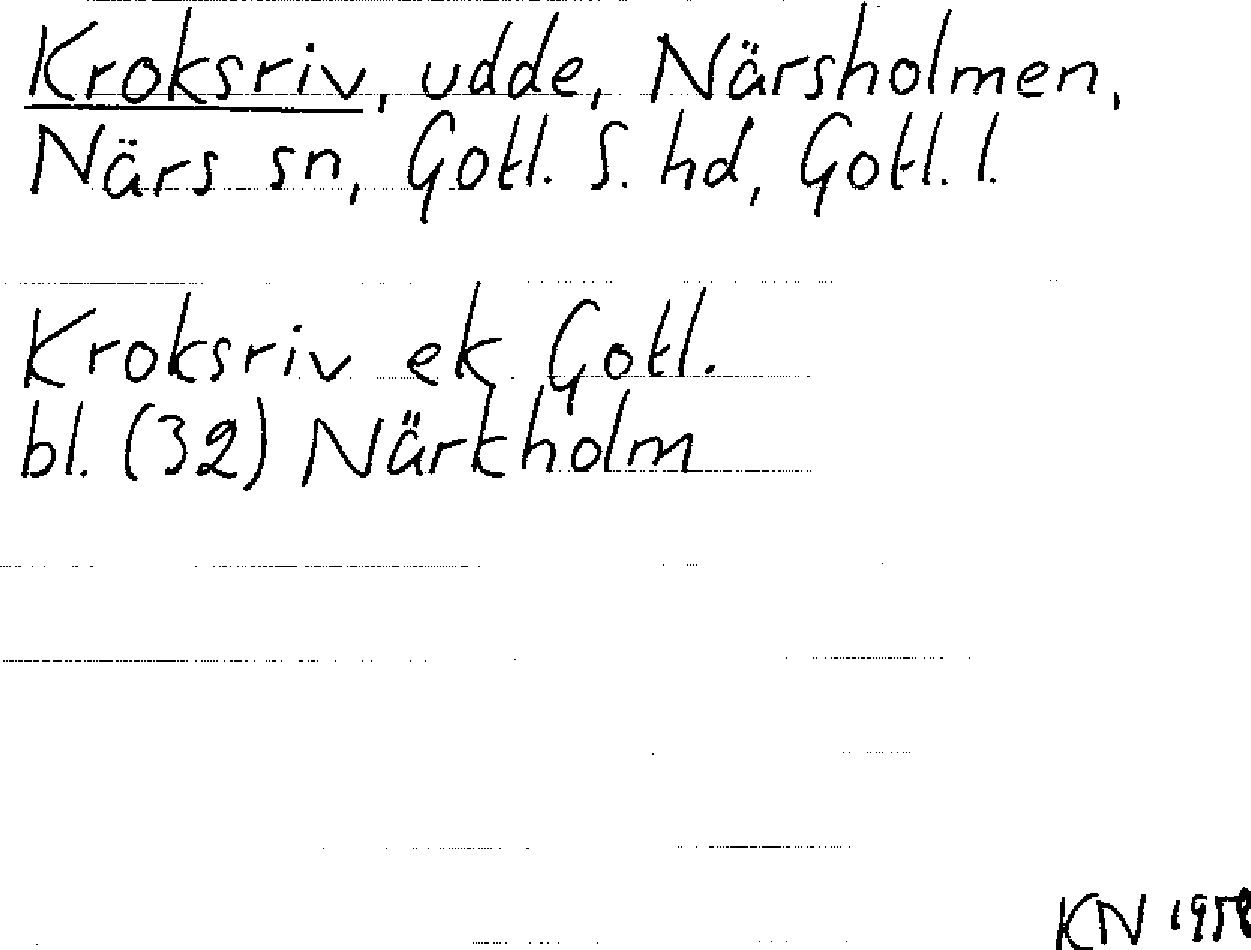 Kroksriv, udde, Närsholmen,
Närs sn, Gotl. S. hd, Gotl. l.
Kroksriv ek Gotl.
bl. (32) Närkholm
KN 1958